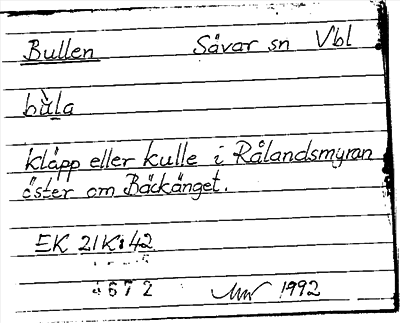 Bullen Sävar sn Vbl
bùla
kläpp eller kulle i Rålandsmyran
öster om Bäckänget.
EK 21K:42
4672 1992